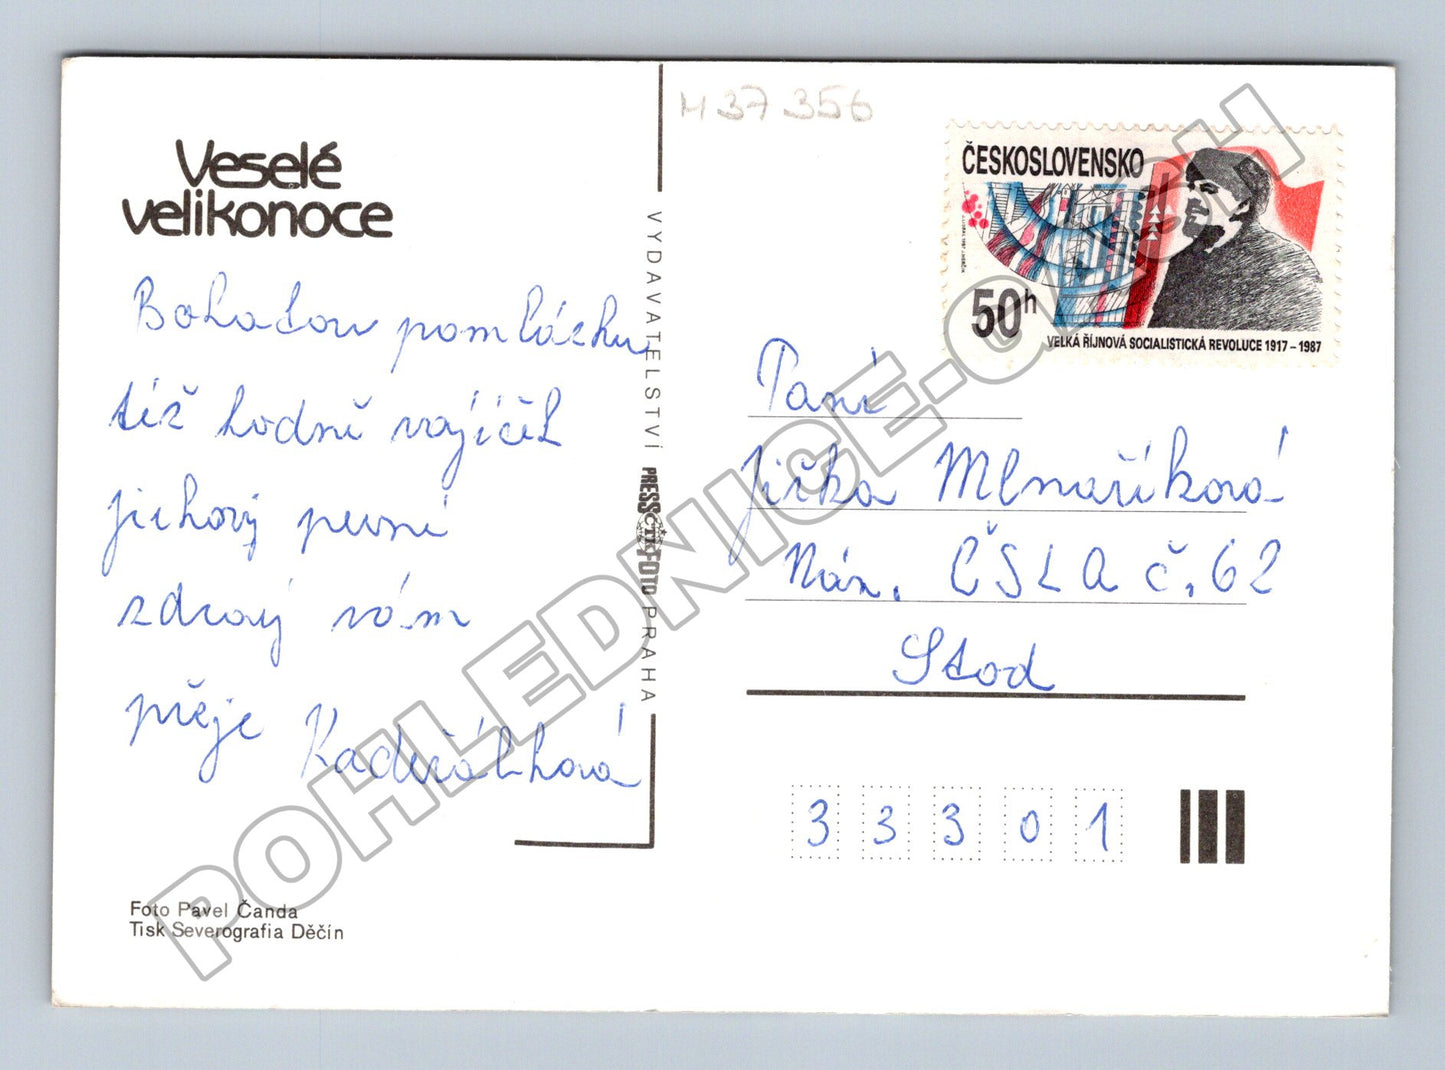 Veselé
velikonoce
Bohatou pomlázku
též hodně vajíček
jichový pevné
zdraví vám
přeje Kadlčáková
Foto Pavel Čanda
Tisk Severografia Děčín
VYDAVATELSTVÍ PRESSFOTO PRAHA
ČTK
M 37 356
ČESKOSLOVENSKO
50h
VELKÁ ŘÍJNOVÁ SOCIALISTICKÁ REVOLUCE 1917 – 1987
Paní
Jiřka Mlnaříková
Nám. ČSLA č. 62
Stod
3 3 3 0 1
POHLEDNICE-